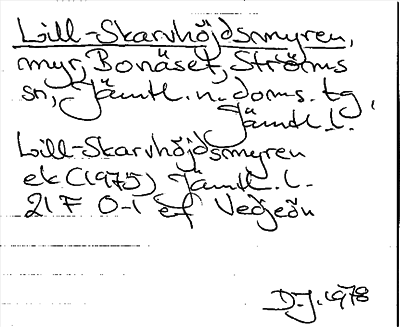 Lill-Skarvhöjdsmyren,
myr, Bonäset, Ströms
sn, Jämtl. n. doms. tg,
Jämtl. l.
Lill-Skarvhöjdsmyren
ek (1975) Jämtl. l.
21 F 0-1 ef
D.J. 1978